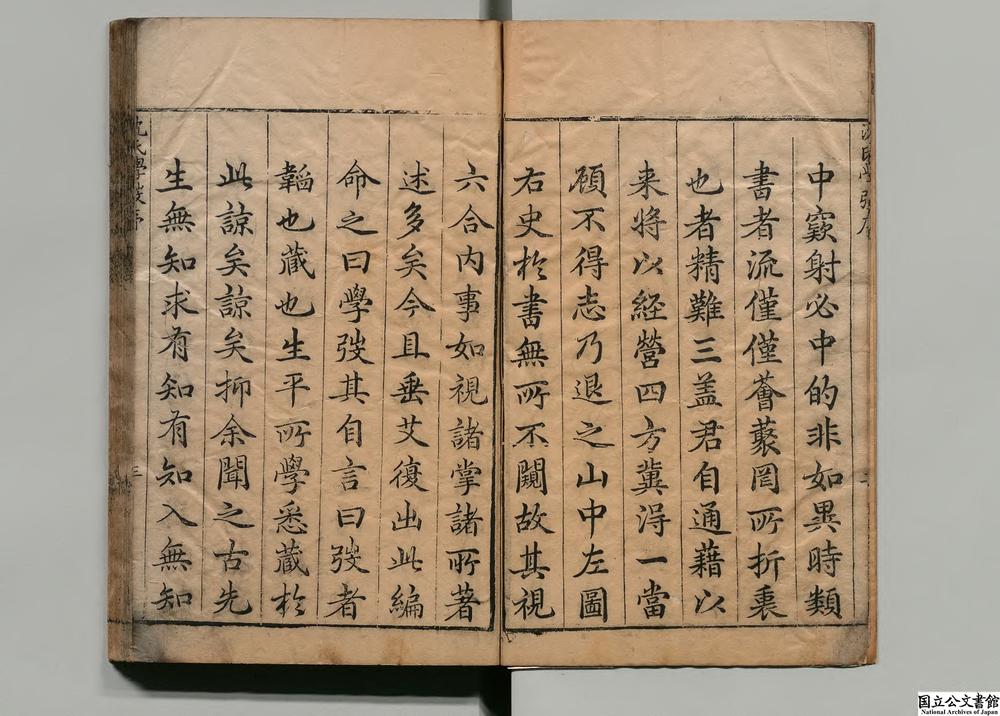 中窾射必中的非如異時類
書者流僅僅薈蕞罔所折衷
也者精難三盖君自通藉以
来将以經營四方冀淂一當
顧不得志乃退之山中左圖
右史於書無所不闚故其視
六合内事如視諸掌諸所著
述多矣今且垂艾復出此編
命之曰學弢其自言曰弢者
韜也藏也生平所學悉藏於
此諒矣諒矣抑余聞之古先
生無知求有知有知入無知
沈氏學弢序
三
国立公文書館
National Archives of Japan